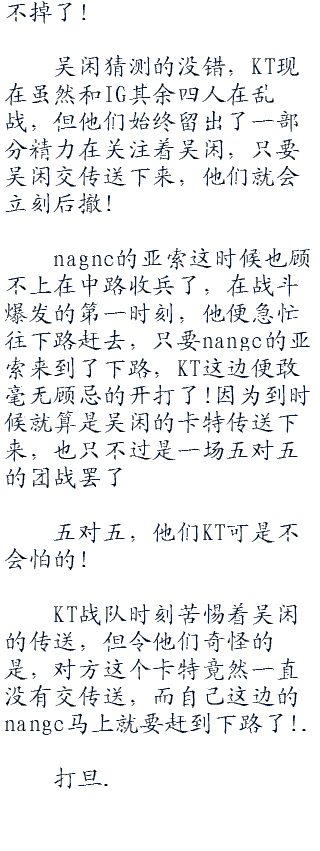 不掉了!
吴闲猜测的没错，KT现
在虽然和IG其余四人在乱
战，但他们始终留出了一部
分精力在关注着吴闲，只要
吴闲交传送下来，他们就会
立刻后撤!
nagnc的亚索这时候也顾
不上在中路收兵了，在战斗
爆发的第一时刻，他便急忙
往下路赶去，只要nangc的亚
索来到了下路，KT这边便敢
毫无顾忌的开打了!因为到时
候就算是吴闲的卡特传送下
来，也只不过是一场五对五
的团战罢了
五对五，他们KT可是不
会怕的!
KT战队时刻苦惕着吴闲
的传送，但令他们奇怪的
是，对方这个卡特竟然一直
没有交传送，而自己这边的
nangc马上就要赶到下路了!.
打旦.